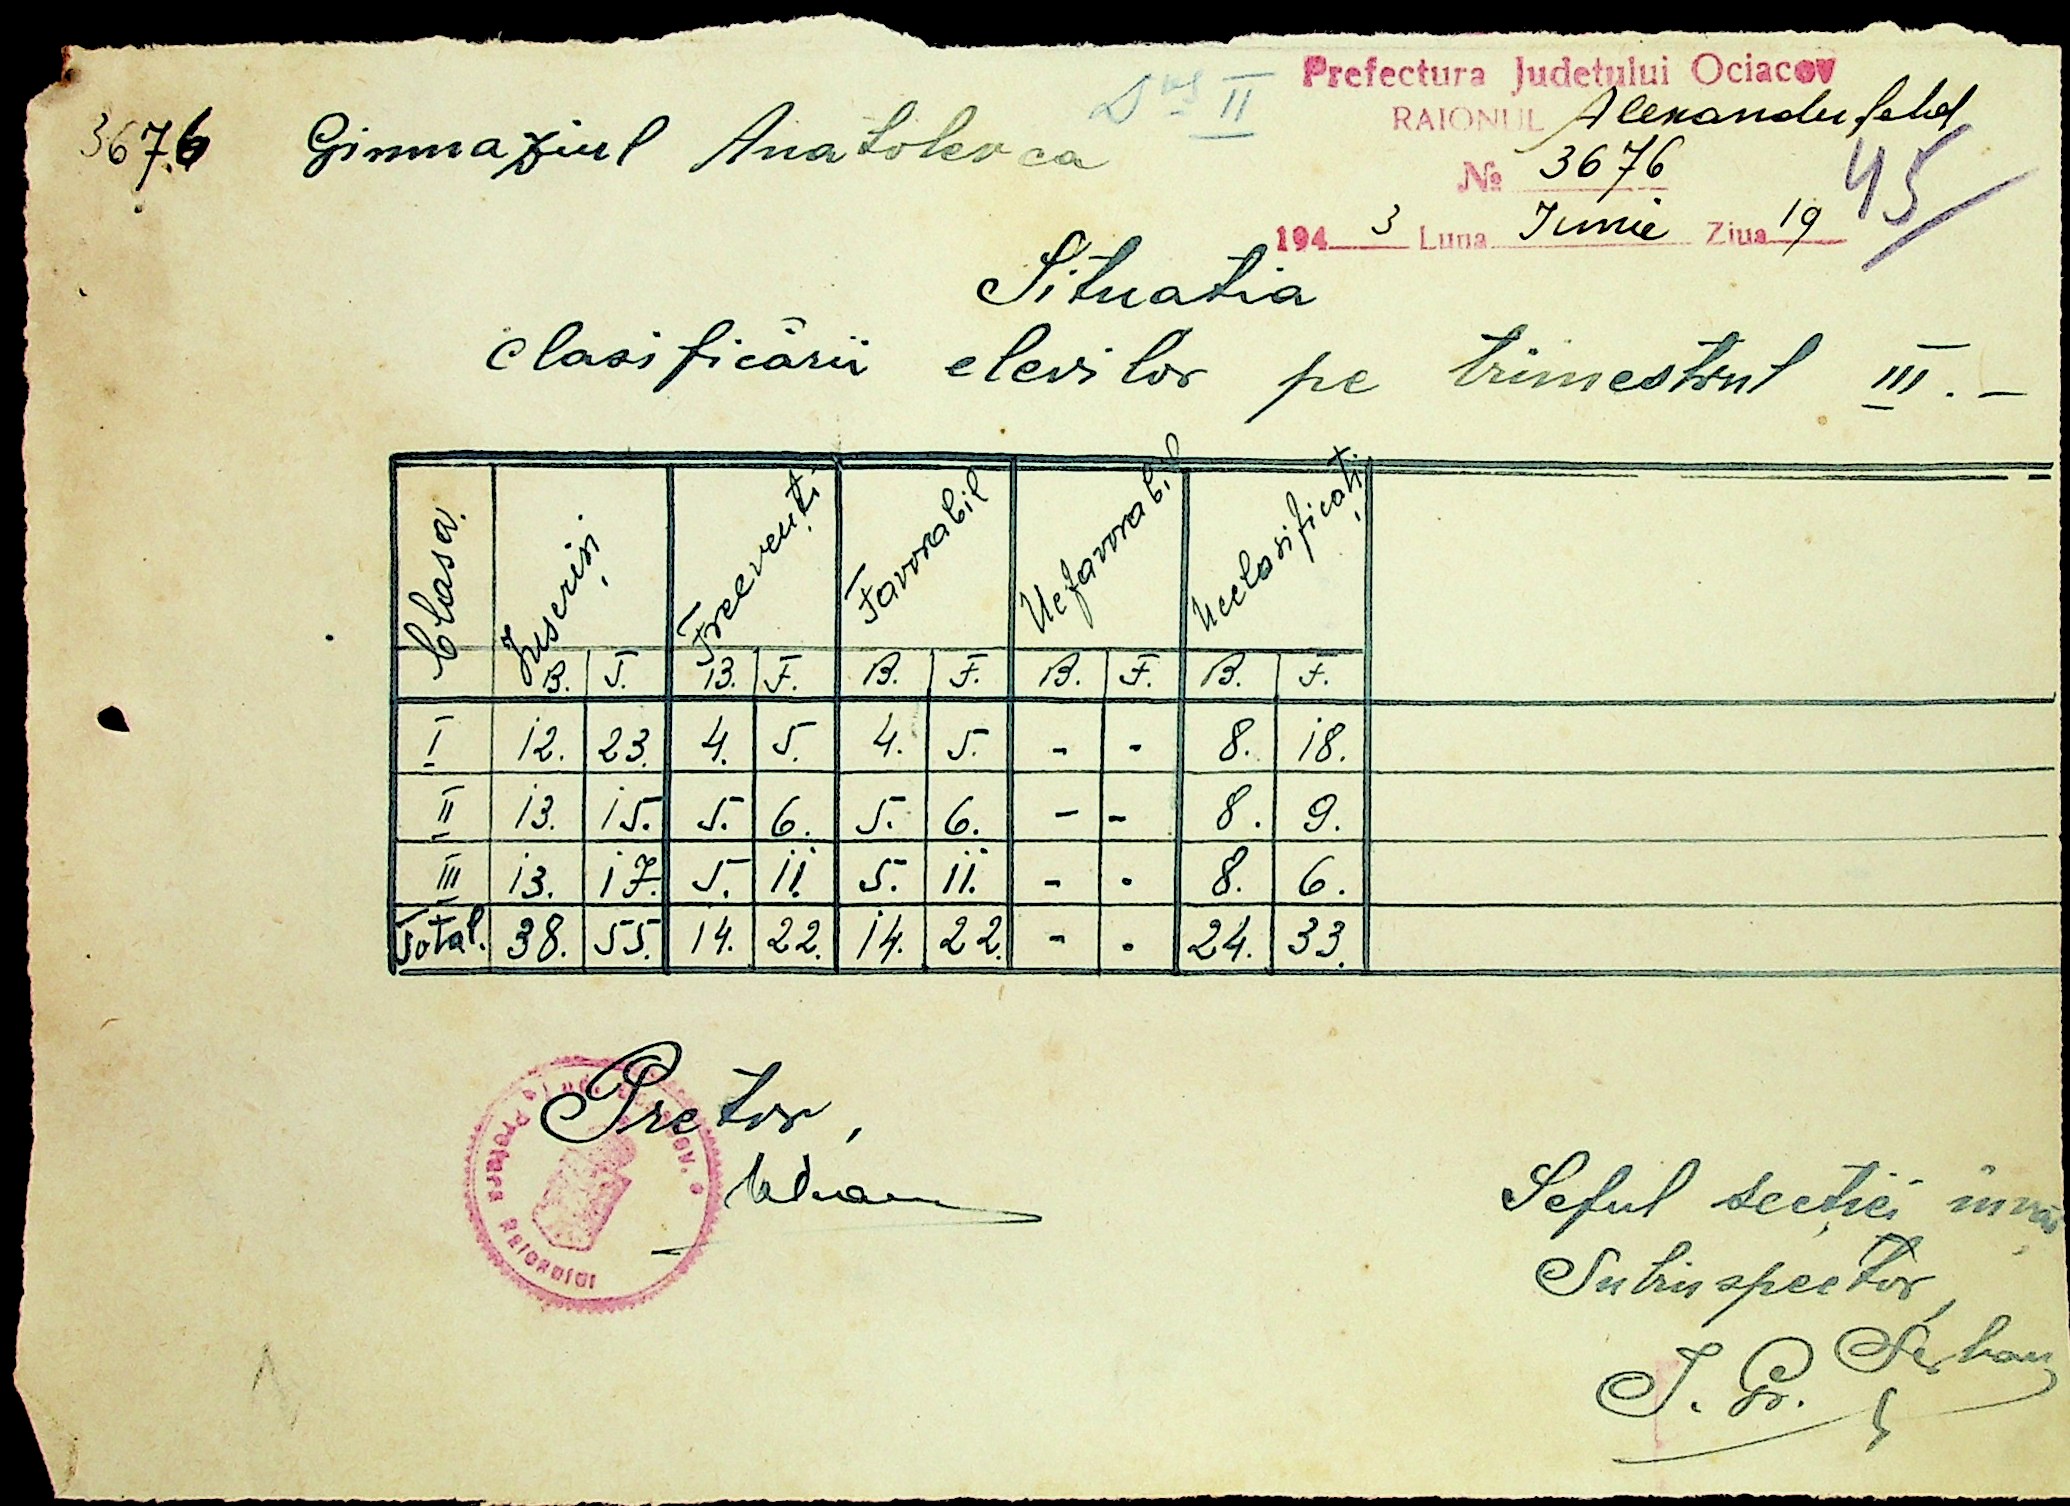 Prefectura Judeţului Ociacov
RAIONUL Alexanderfeld
№ 3676
1943 Luna Iunie Ziua 19
45/
3676 Gimnaziul Anatolevca
II
Situatia
clasificării elevilor pe trimestrul III.-
Clasa. Inscrişi Frecvenţi Favorabil Nefavorabil Neclasificaţi
B. F. B. F. B. F. B. F. B. F.
I 12. 23. 4. 5. 4. 5. - - 8. 18.
II 13. 15. 5. 6. 5. 6. - - 8. 9.
III 13. 17. 5. 11. 5. 11. - - 8. 6.
Total. 38. 55. 14. 22. 14. 22. - - 24. 33.
Pretor,
Pretura Raionului
Seful secţiei
Subinspector,
I. Gr. Şerban